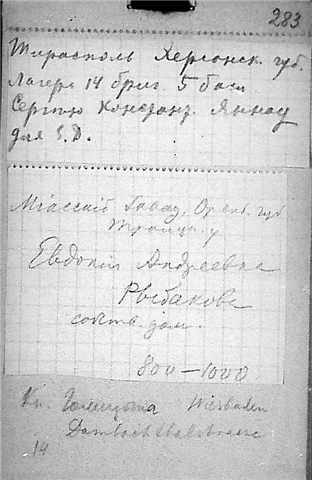 283
Тирасполь Херсонск. губ.
Лагерь 14 бриг. 5 бат
Сергѣю Констант.
для Е.Д.
Міасскій Заводъ, Оренб. губ
Троицк. у
Евдокіи Андреевнѣ
Рыбаковой
собств. дом.
800—1000
Кн. Голицына Wiesbaden
Dambachthalstrasse
14